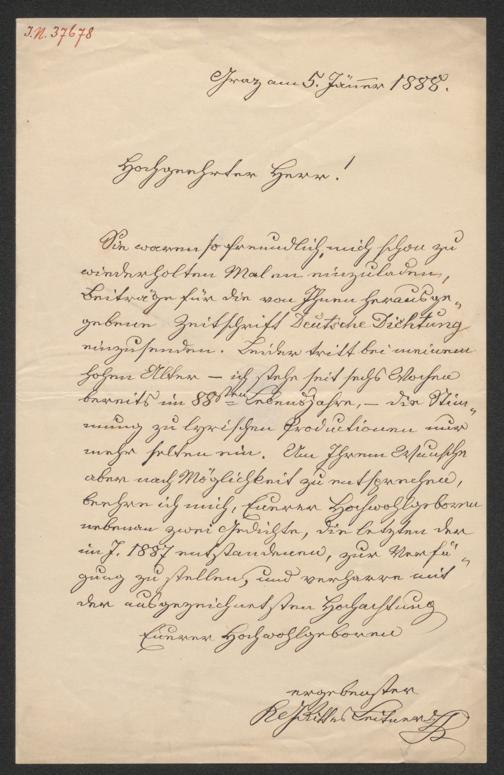 J.N. 37678
Graz am 5. Jänner 1888.
Hochgeehrter Herr!
Sie waren so freundlich, mich schon zu
wiederholten Malen einzuladen,
Beiträge für die von Ihnen herausge-
gebene Zeitschrift Deutsche Dichtung
einzusenden. Leider tritt bei meinem
hohen Alter – ich stehe seit sechs Wochen
bereits im 88sten Lebensjahre, – die Stim-
mung zu lyrischen Productionen nur
mehr selten ein. Um Ihrem Wunsche
aber nach Möglichkeit zu entsprechen,
beehre ich mich, Euerer Hochwohlgeboren
nebenan zwei Gedichte, die letzten der
im J. 1887 entstandenen, zur Verfü-
gung zu stellen, und verharre mit
der ausgezeichnetsten Hochachtung
Euerer Hochwohlgeboren
ergebenster
Ritter Leitner